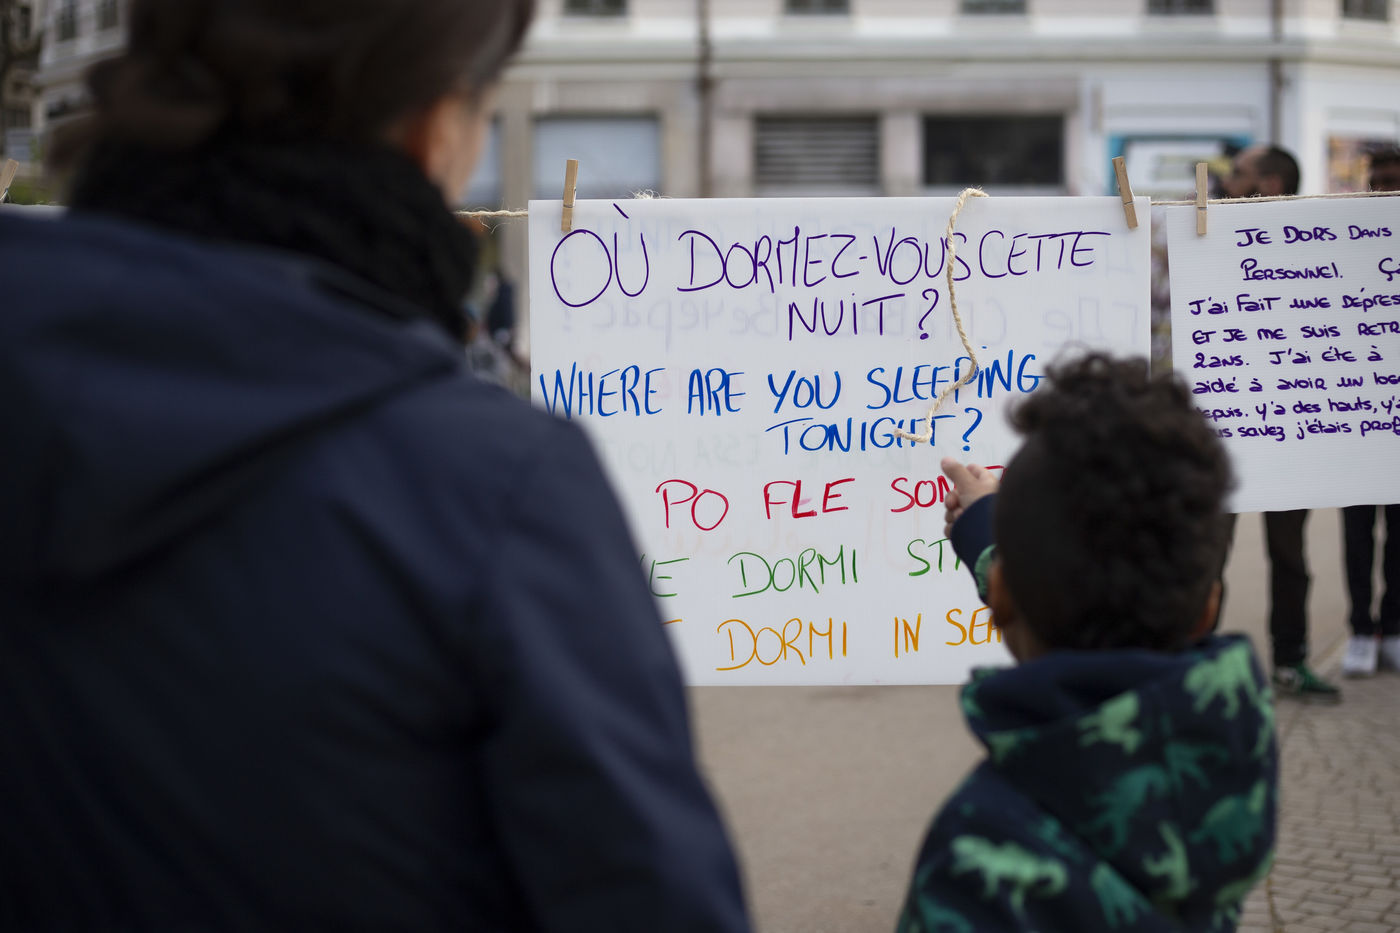 OÙ DORMEZ-VOUS CETTE
NUIT ?
WHERE ARE YOU SLEEPING
TONIGHT ?
PO FLE
DORMI
DORMI IN
JE DORS DANS
PERSONNEL.
J'ai FAIT UNE
ET JE ME SUIS
2ans. J'ai éte à
aidé à avoir un
y'a des hauts,
savez j'étais